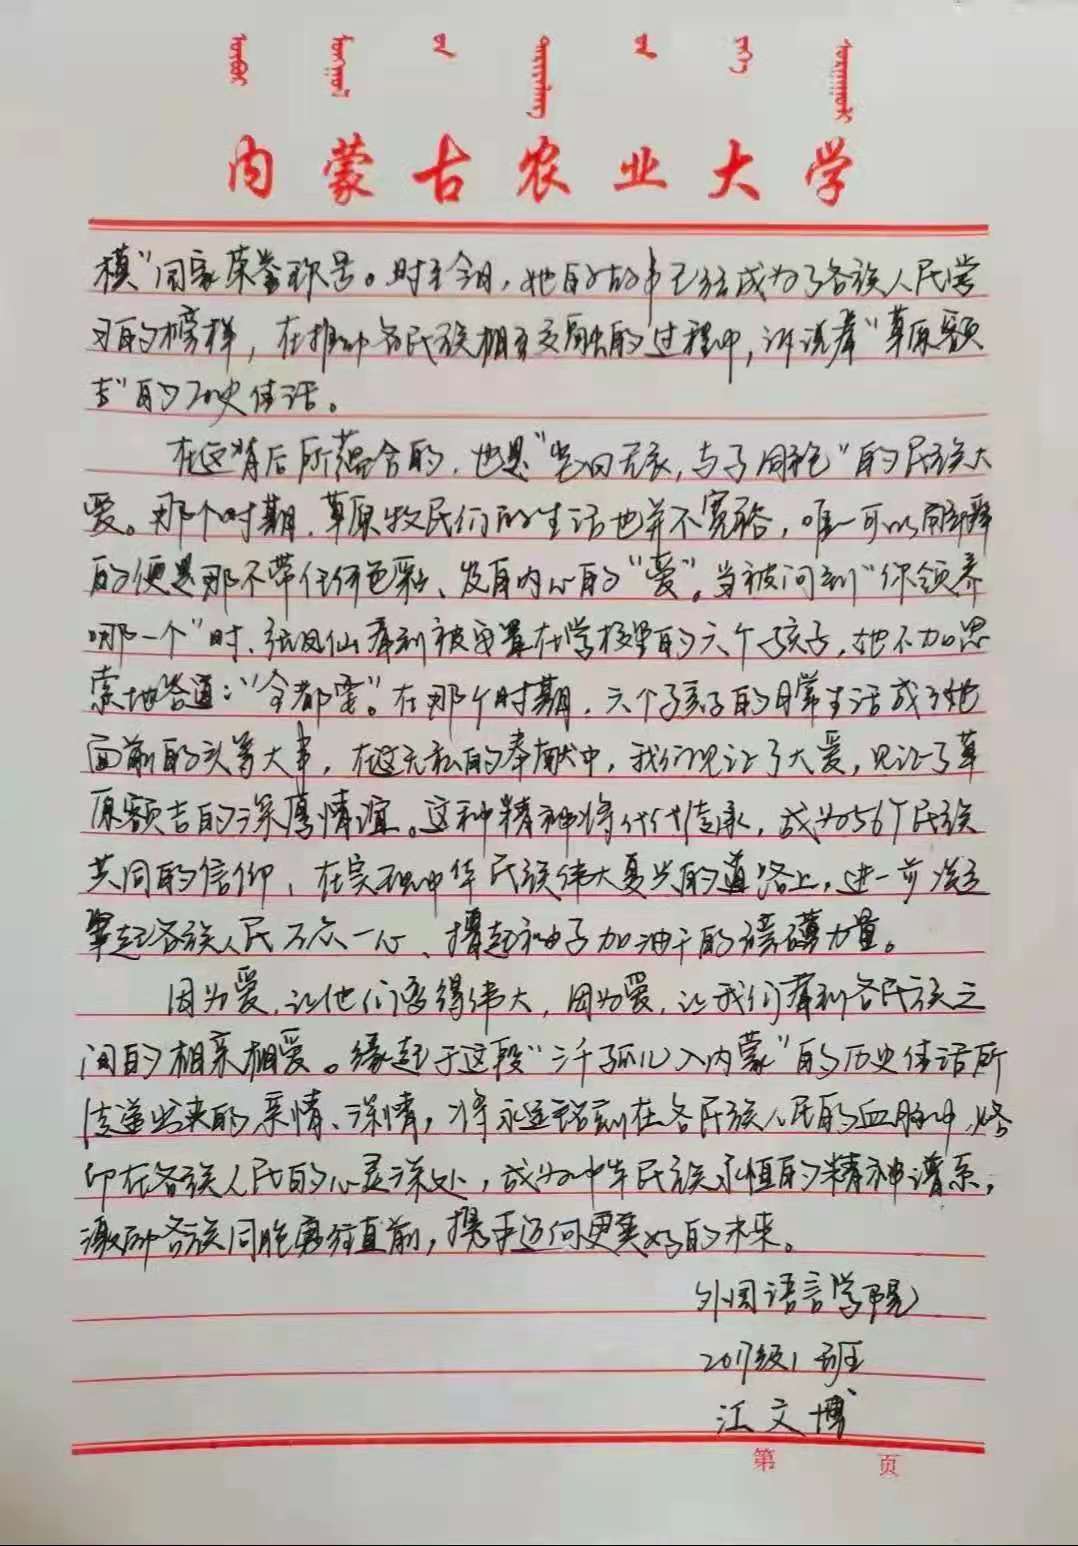 内蒙古农业大学
模”国家荣誉称号。时至今日，她的故事已经成为了各族人民学
习的榜样，在推动各民族相互交融的过程中，诉说着“草原额
吉”的历史佳话。
在这背后所蕴含的，也是“岂曰无衣，与子同袍”的民族大
爱。那个时期，草原牧民们的生活也并不宽裕，唯一可以解释
的便是那不带任何色彩、发自内心的“爱”。当被问到“你领养
哪一个”时，张凤仙看到被安置在学校里的六个孩子，她不加思
索地答道：“全都要”。在那个时期，六个孩子的日常生活成了她
面前的头等大事，在这无私的奉献中，我们见证了大爱，见证了草
原额吉的深厚情谊。这种精神将代代传承，成为56个民族
共同的信仰，在实现中华民族伟大复兴的道路上，进一步凝
聚起各族人民万众一心、撸起袖子加油干的磅礴力量。
因为爱，让他们变得伟大，因为爱，让我们看到各民族之
间的相亲相爱。缘起于这段“三千孤儿入内蒙”的历史佳话所
传递出来的亲情、深情，将永远铭刻在各民族人民的血脉中，烙
印在各族人民的心灵深处，成为中华民族永恒的精神谱系，
激励各族同胞勇往直前，携手迈向更美好的未来。
外国语言学院
级1班
江文博
第 页